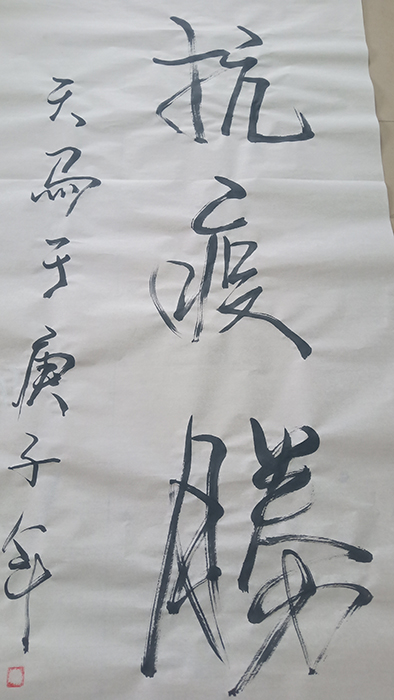 抗疫勝
天馬于庚子年